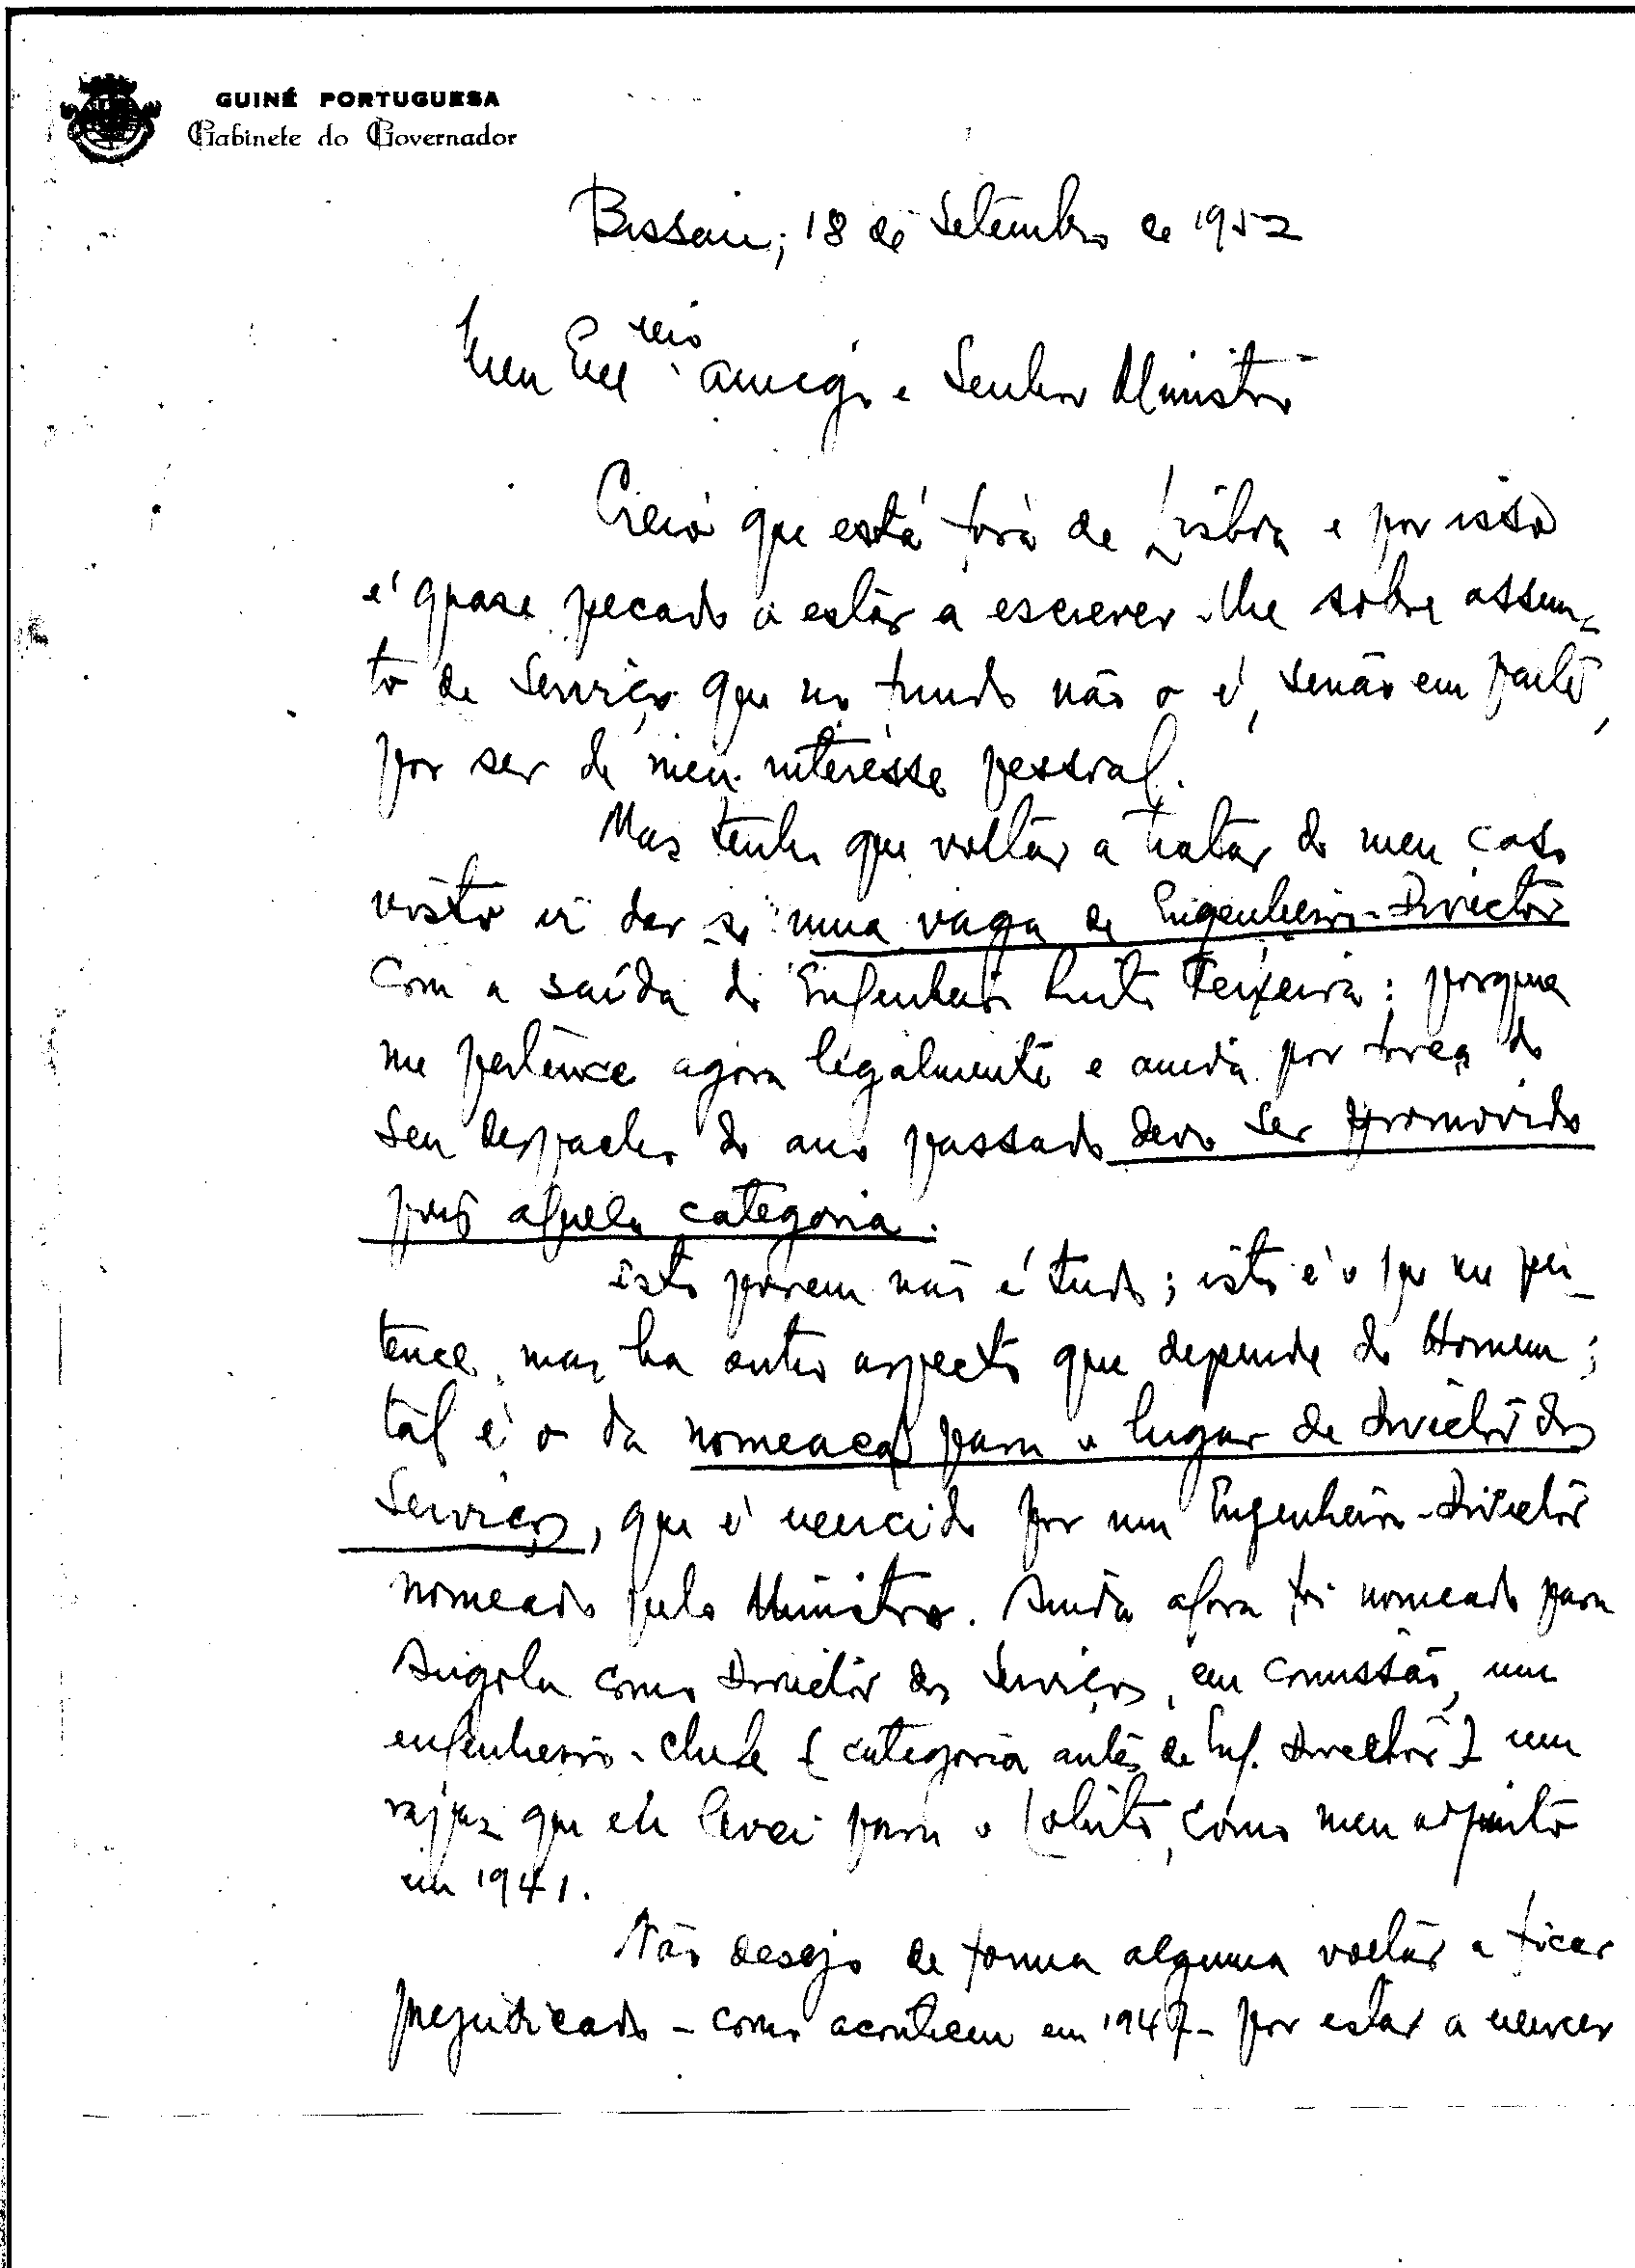 GUINÉ PORTUGUESA
Gabinete do Governador
Bissau, 18 de Setembro de 1952
Meu Exmo amigo e Senhor Ministro
Creio que está fora de Lisboa e por isso
é quase pecado o estar a escrever-lhe sobre assun-
to de serviço que no fundo não o é, senão em parte,
por ser de meu interesse pessoal.
Mas tenho que voltar a tratar do meu caso
visto ir dar-se uma vaga de Engenheiro-Director
com a saída do Engenheiro Teixeira: porque
me pertence agora legalmente e ainda por força do
seu despacho do ano passado devo ser promovido
para aquela categoria.
isto porem não é tudo; isto é o que me per-
tence, mas ha outro aspecto que depende do Homem;
tal é o da nomeação para o lugar de director dos
Serviços, que é exercido por um Engenheiro-Director
nomeado pelo Ministro. Ainda agora foi nomeado para
Angola como Director dos Serviços, em comissão, um
engenheiro-chefe (categoria antes de Eng. Director) um
rapaz que eu levei para o Lobito, como meu adjunto
em 1941.
Não desejo de forma alguma voltar a ficar
prejudicado - como aconteceu em 1947 - por estar a exercer